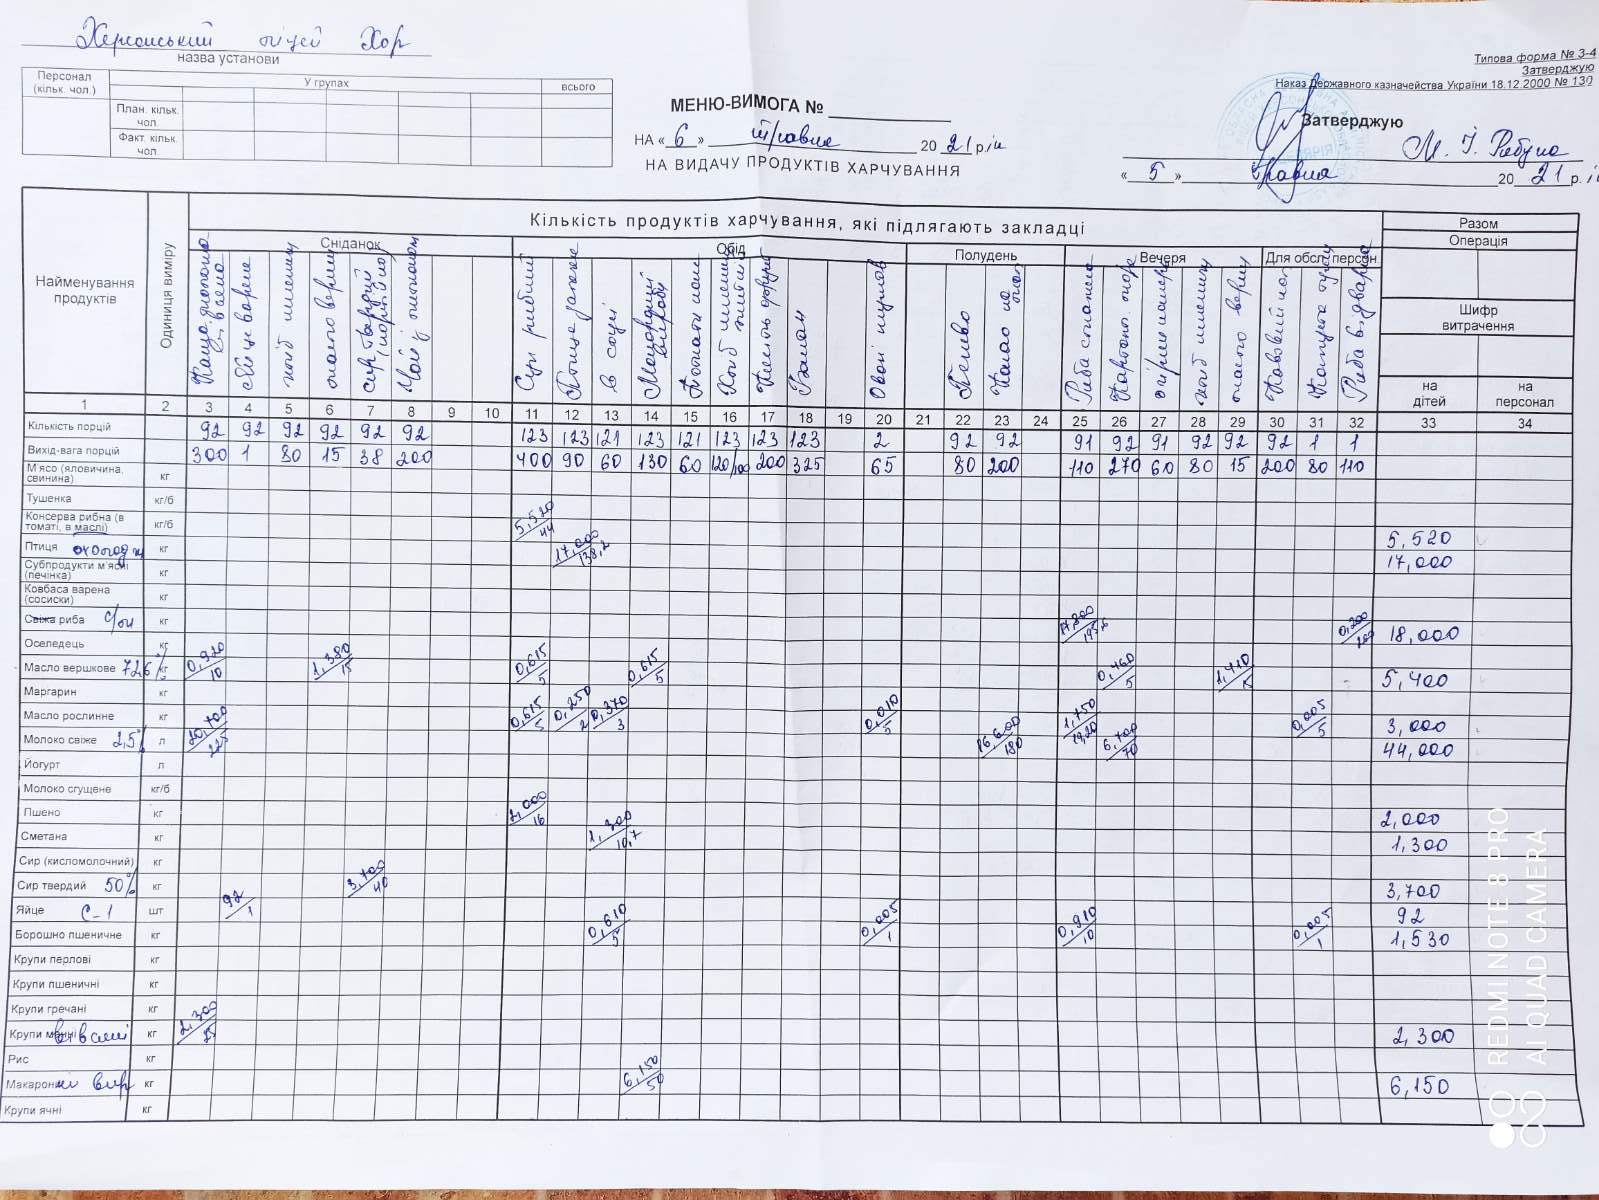 Херсонський ліцей ХОР
назва установи
Типова форма № З-4
Затверджую
Наказ Державного казначейства України 18.12.2000 № 130
Персонал (кільк. чол.) У групах всього
План. кільк. чол.
Факт. кільк. чол.
МЕНЮ-ВИМОГА №
НА « 6 » травня 20 21 р.
НА ВИДАЧУ ПРОДУКТІВ ХАРЧУВАННЯ
Затверджую
М. І.
« 5 » травня 20 21 р.
Найменування продуктів
Одиниця виміру
Кількість продуктів харчування, які підлягають закладці
Разом
Операція
Сніданок Обід Полудень Вечеря Для обсл. персон.
Шифр витрачення
на дітей на персонал
Яйце варене
хліб пшениц
масло вершк
Сир твердий
Суп рибний
Птиця
в соусі
Банан
Овочі
Печиво
Какао
Риба
хліб пшениц
масло верш
Риба відварна
1 2 3 4 5 6 7 8 9 10 11 12 13 14 15 16 17 18 19 20 21 22 23 24 25 26 27 28 29 30 31 32 33 34
Кількість порцій 92 92 92 92 92 92 123 123 121 123 121 123 123 123 2 92 92 91 92 91 92 92 92 1 1
Вихід-вага порцій 300 1 80 15 38 200 400 90 60 130 60 120/100 200 325 65 80 200 110 270 60 80 15 200 80 110
М'ясо (яловичина, свинина) кг
Тушенка кг/б
Консерва рибна (в томаті, в маслі) кг/б 5,520/44 5,520
Птиця охолодж кг 17,000/138,2 17,000
Субпродукти м'ясні (печінка) кг
Ковбаса варена (сосиски) кг
Свіжа риба с/м кг 17,800/195,6 0,200/200 18,000
Оселедець кг
Масло вершкове 72,6% кг 0,920/10 1,380/15 0,615/5 0,615/5 0,460/5 1,410/15 5,400
Маргарин кг
Масло рослинне кг 0,615/5 0,250/2 0,370/3 0,010/5 1,750/19,20 0,005/5 3,000
Молоко свіже 2,5% л 20,700/225 16,600/180 6,700/70 44,000
Йогурт л
Молоко сгущене кг/б
Пшено кг 2,000/16 2,000
Сметана кг 1,300/10,7 1,300
Сир (кисломолочний) кг
Сир твердий 50% кг 3,700/40 3,700
Яйце С-1 шт 92/1 92
Борошно пшеничне кг 0,610/5 0,005/1 0,910/10 0,005/1 1,530
Крупи перлові кг
Крупи пшеничні кг
Крупи гречані кг
Крупи манні вівсяні кг 2,300/25 2,300
Рис кг
Макаронні вир кг 6,150/50 6,150
Крупи ячні кг
REDMI NOTE 8 PRO
AI QUAD CAMERA